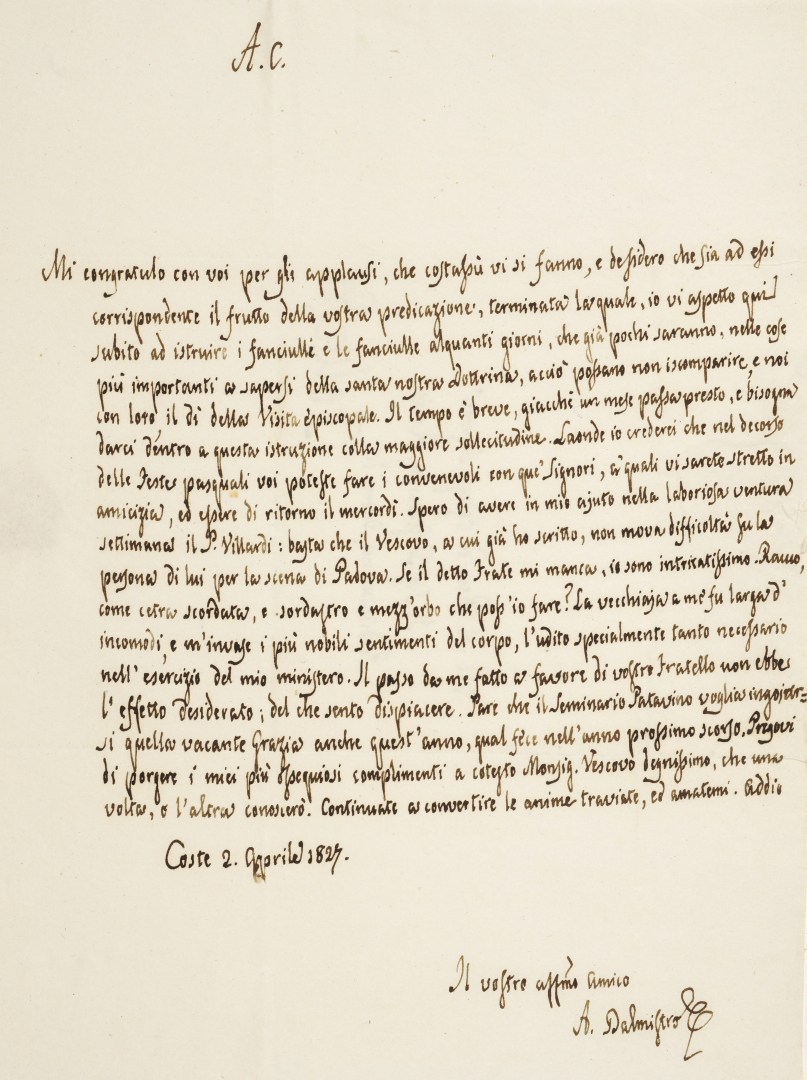 A. C.
Mi congratulo con voi per gli applausi, che costassù vi si fanno, e desidero che sia ad essi
corrispondente il frutto della vostra predicazione, terminata la quale, io vi aspetto qui
subito ad istruire i fanciulli e le fanciulle alquanti giorni, che già pochi saranno, nelle cose
più importanti a sapersi della santa nostra Dottrina, acciò possano non iscomparire, e noi
con loro il dì della Visita Episcopale. Il tempo è breve, giacchè un mese passa presto, e bisogna
darci dentro a questa istruzione colla maggiore sollecitudine. Laonde io crederei che nel decorso
delle Feste pasquali voi poteste fare i convenevoli con que' Signori, a' quali vi sarete stretto in
amicizia, ed essere di ritorno il mercordì. Spero di avere in mio ajuto nella laboriosa ventura
settimana il P. Villardi: basta che il Vescovo, a cui già ho scritto, non mova difficoltà su la
persona di lui per la scena di Padova. Se il detto Frate mi manca, io sono intricatissimo. Rauco,
come cetra scordata, e sordastro e mezz'orbo che poss'io fare? La vecchiaja a me fu larga d'
incomodi, e m'invase i più nobili sentimenti del corpo, l'udito specialmente tanto necessario
nell'esercizio del mio ministero. Il passo da me fatto a favore di vostro Fratello non ebbe
l'effetto desiderato; del che sento dispiacere. Pare che il Seminario Patavino voglia ingojar=
si quella vacante Grazia anche quest'anno, qual fece nell'anno prossimo scorso. Pregovi
di porgere i miei più ossequiosi complimenti a cotesto Monsig. Vescovo degnissimo, che una
volta, o l'altra conoscerò. Continuate a convertire le anime traviate, ed amatemi. Addio
Coste 2. Aprile 1827.
Il vostro affmo amico
A. Dalmistro